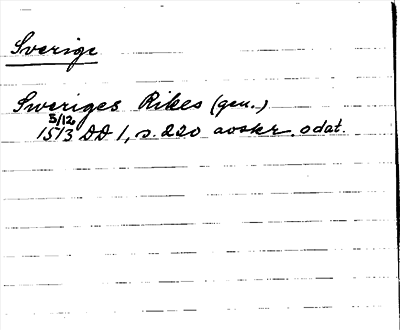 Sverige
Sweriges Rikes (gen.)
5/12
1513 DD 1, s. 220 avskr. odat.